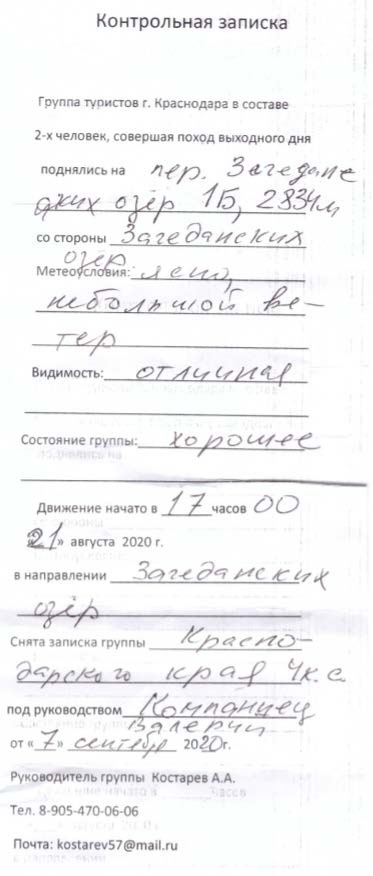 Контрольная записка
Группа туристов г. Краснодара в составе
2-х человек, совершая поход выходного дня
поднялись на пер. Загеданс
ких озёр 1Б, 2834м
со стороны Загеданских
озёр
Метеоусловия: ясно,
небольшой ве-
тер
Видимость: отличная
Состояние группы: хорошее
Движение начато в 17 часов 00
21» августа 2020 г.
в направлении Загеданских
озёр
Снята записка группы Красно-
дарского края 4к.с.
под руководством Компаниец
Валерий
от «7» сентябр 2020г.
Руководитель группы Костарев А.А.
Тел. 8-905-470-06-06
Почта: kostarev57@mail.ru